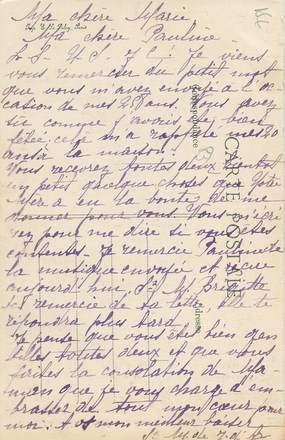 Ma chère Marie
Ma chère Pauline
L. S. N. S. J. C! Je viens
vous remercier du petit mot
que vous m'avez envoyé à l'oc
casion de mes 21 ans. Vous avez
su comme j'avais été bien
fêtée, cela m'a rappelé mes 20
ans à la maison.
Vous recevrez toutes deux bientôt
un petit quelque choses que Votre
Mère a eu la bonté de me
donner pour vous. Vous m'écri
rez pour me dire si vous êtes
contentes. Je remercie Paulinette
la musique envoyée et reçue
aujourd'hui. Sr M. Brigitte
te remercie de sa lettre, elle te
répondra plus tard.
Je pense que vous êtes bien gen
tilles toutes deux et que vous
faites la consolation de Ma-
man que je vous charge d'em-
brasser de tout mon cœur pour
moi. A vous mon meilleur baiser
Sr M. de J.
CARTE POSTALE
Correspondance
Adresse